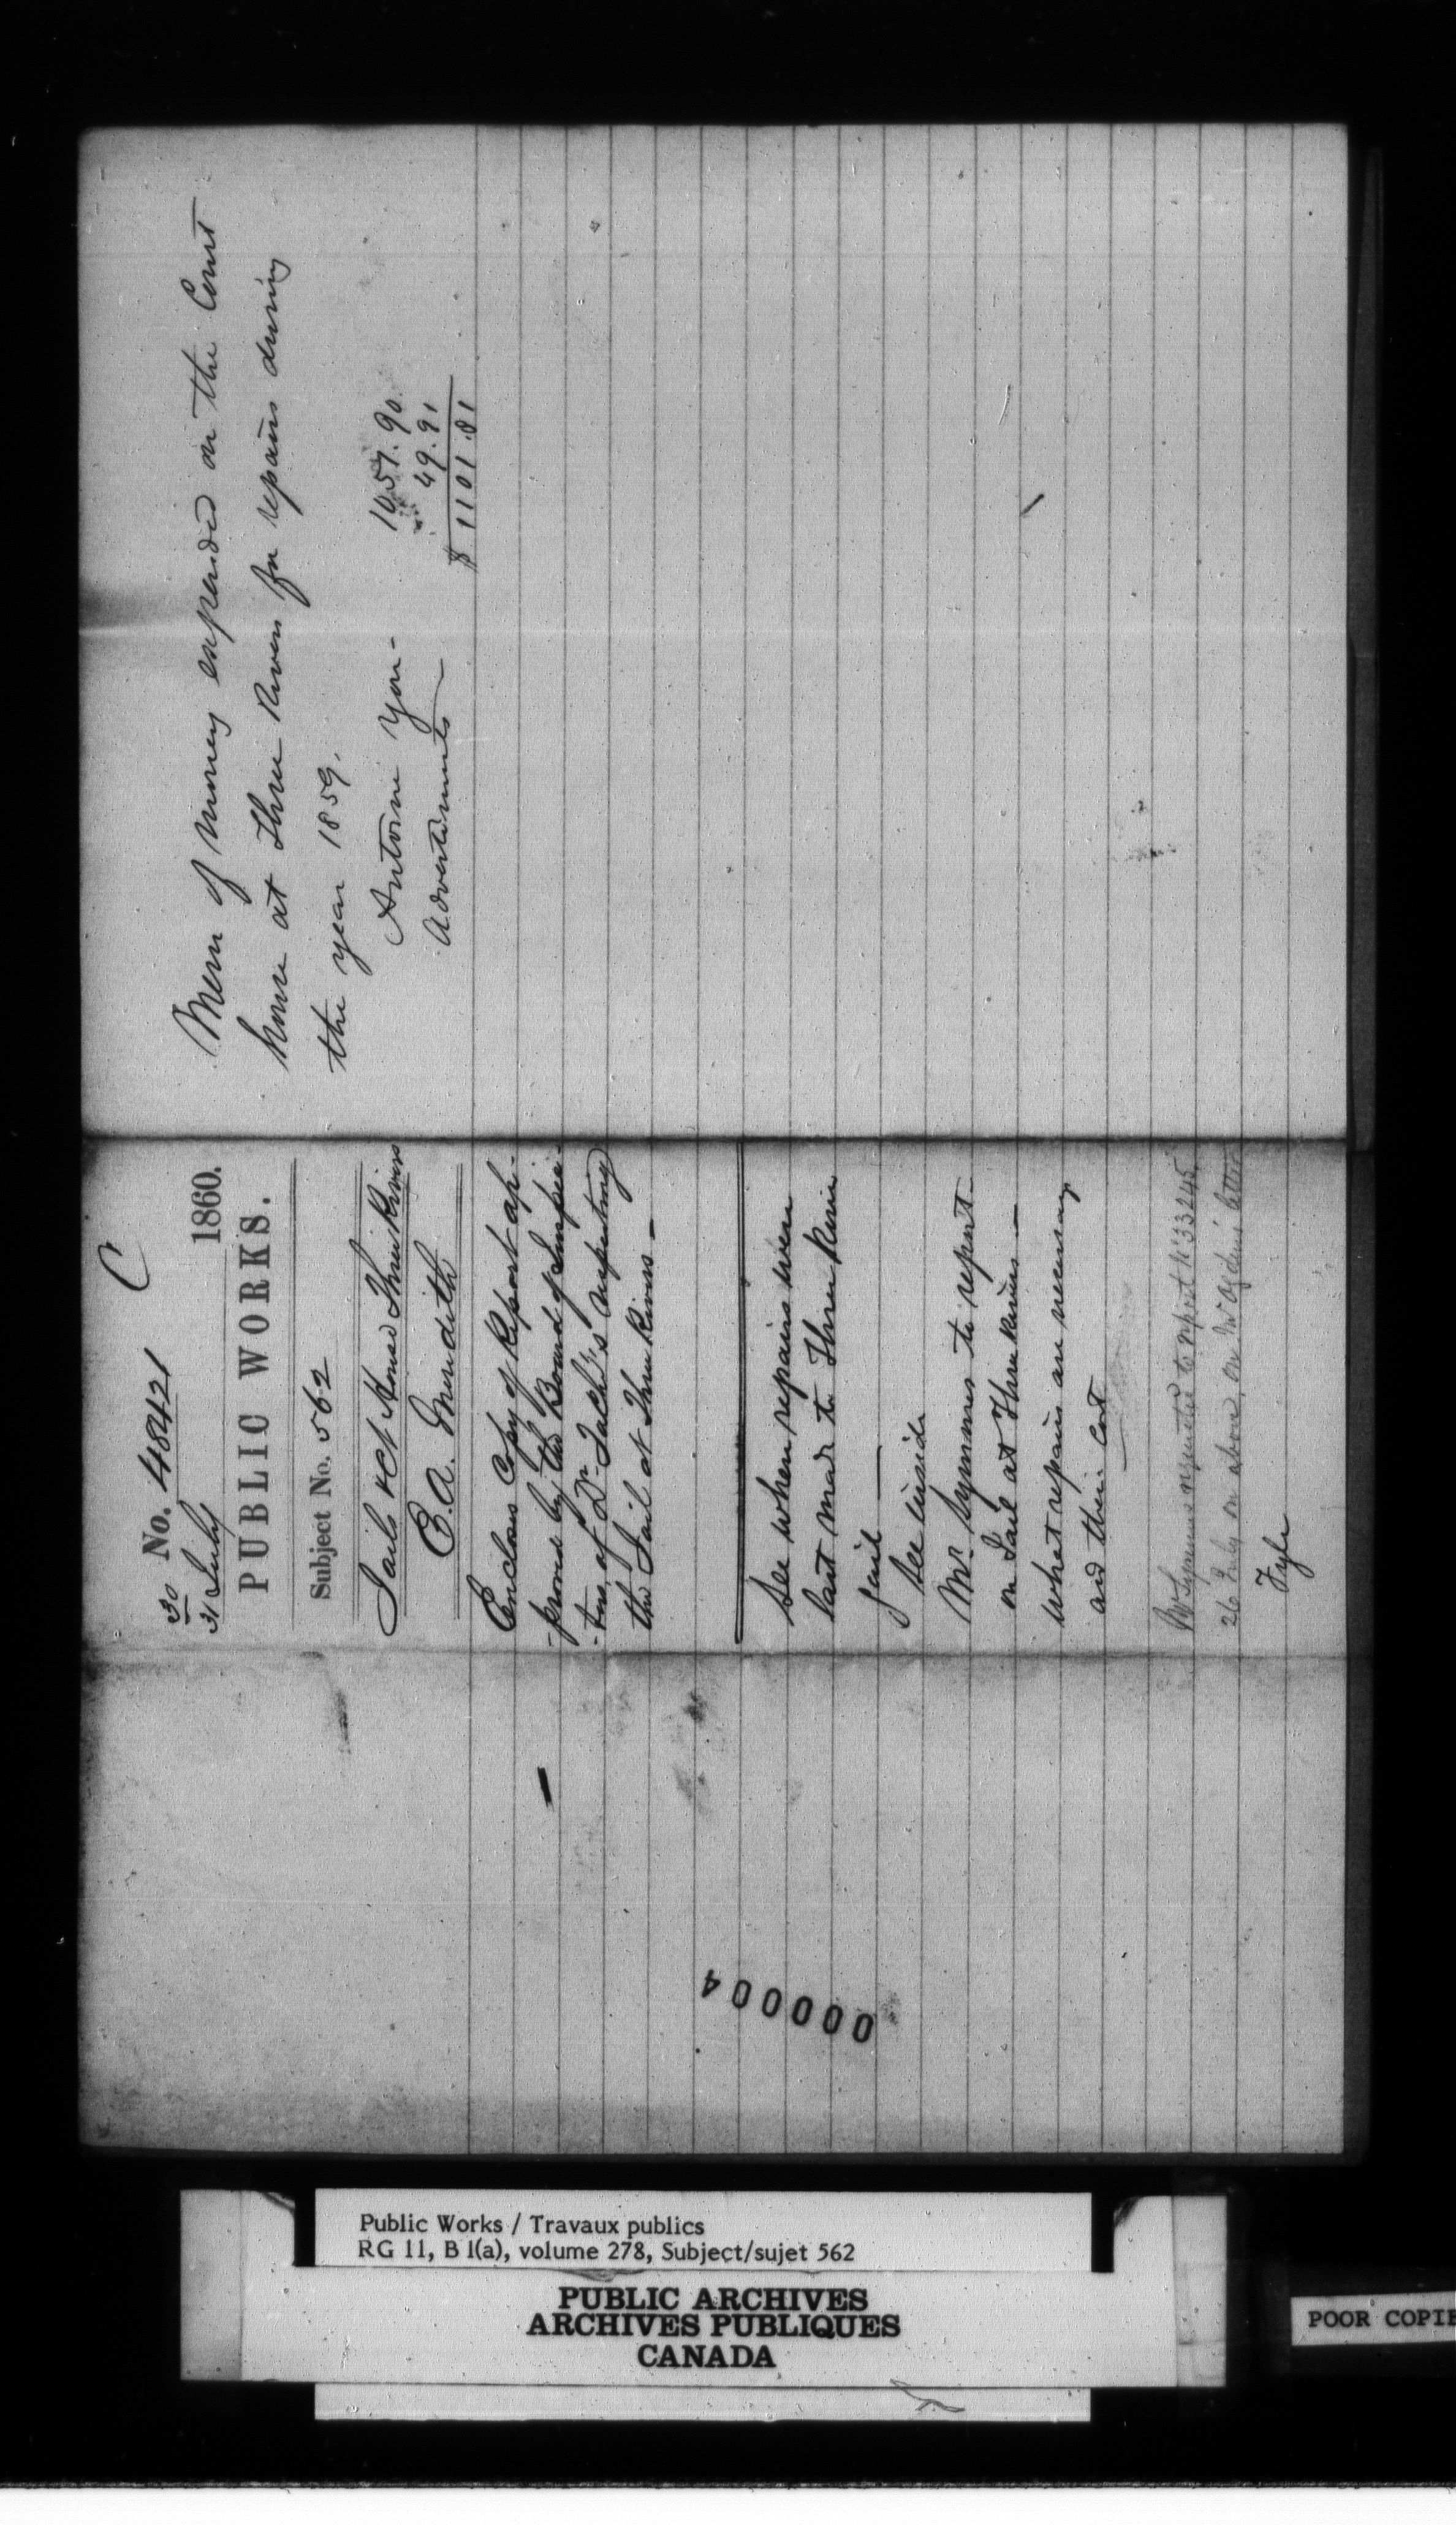 C
30 No. 48421
31 July 1860.
PUBLIC WORKS.
Subject No. 562
Jails & Ct House Three Rivers
E. A. Meredith
Encloses Copy of Report ap-
-proved by the Board of Inspec-
-tors, of Dr. Taché's respecting
the Jail at Three Rivers —
See when repairs were
last made to Three River
jail —
See inside
Mr. Symmes to report
on Jail at Three Rivers —
what repairs are necessary
and their cost
Mr Symmes requested to report No 33245
26 July on above, on W. Ogden's letter
Fyle
Mem of money expended on the Court
house at Three Rivers for repairs during
the year 1859.
Antoine You - 1051.90
Advertismts — 49.91
$ 1101.81
000004
Public Works / Travaux publics
RG 11, B 1(a), volume 278, Subject/sujet 562
PUBLIC ARCHIVES
ARCHIVES PUBLIQUES
CANADA
POOR COPIE